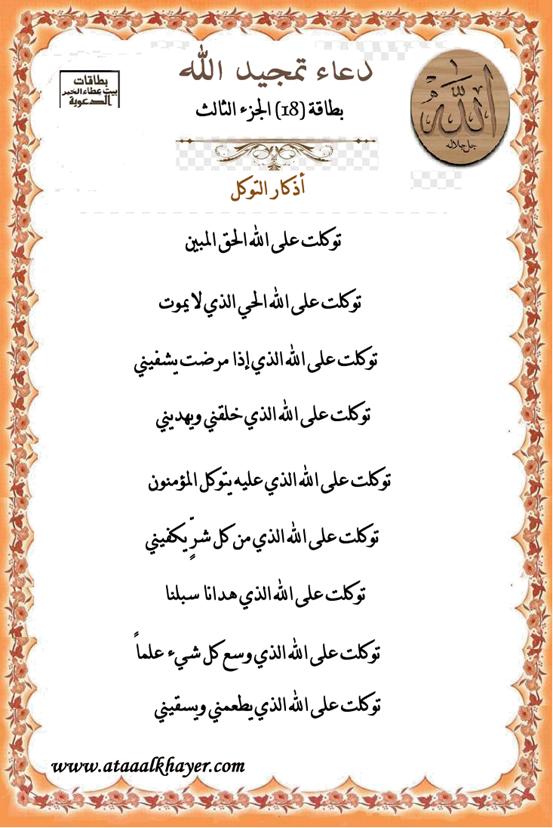 دعاء تمجيد الله
بطاقات
بيت عطاء الخير
الدعوية
الله
جل جلاله
بطاقة (18) الجزء الثالث
أذكار التوكل
توكلت على الله الحق المبين
توكلت على الله الحي الذي لا يموت
توكلت على الله الذي إذا مرضت يشفيني
توكلت على الله الذي خلقني ويهديني
توكلت على الله الذي عليه يتوكل المؤمنون
توكلت على الله الذي من كل شرٍّ يكفيني
توكلت على الله الذي هدانا سبلنا
توكلت على الله الذي وسع كل شيء علماً
توكلت على الله الذي يطعمني ويسقيني
www.ataaalkhayer.com